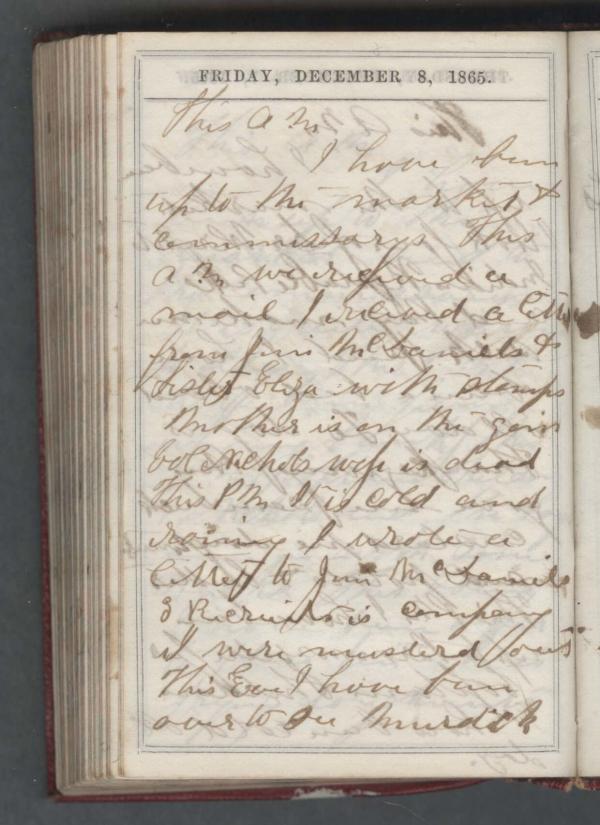 FRIDAY, DECEMBER 8, 1865.
This A M
I have bin
up to the market &
commissarys This
a M we recieved a
mail I recieved a letter
from Jim McDaniels &
Sister Eliza with stamps
Mother is on the gain
Bol Nichols wife is dead
This P M It is cold and
raining I wrote a
letter to Jim McDaniels
3 Recruits is company
I were musterd out
This Eve I have bin
over to see Murdick